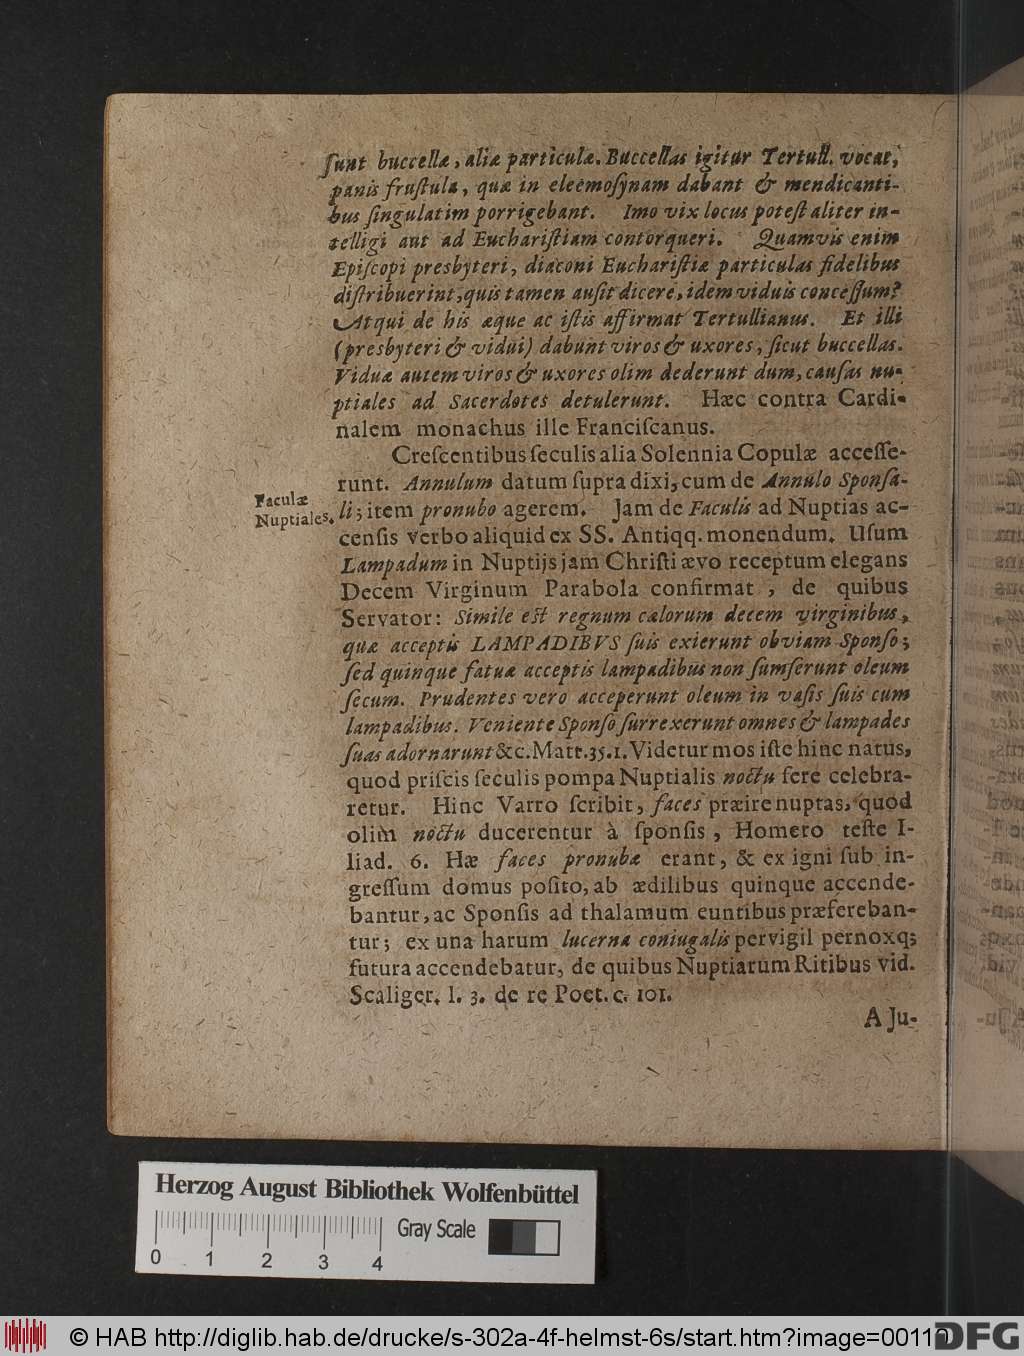 ſunt buccellæ, aliæ particulæ. Buccellas igitur Tertull. vocat,
panis fruſtula, quæ in eleemoſynam dabant & mendicanti-
bus ſingulatim porrigebant. Imo vix locus poteſt aliter in-
telligi aut ad Euchariſtiam contorqueri. Quamvis enim
Epiſcopi presbyteri, diaconi Euchariſtiæ particulas fidelibus
diſtribuerint, quis tamen auſit dicere, idem viduis conceſſum?
Atqui de his æque ac iſtis affirmat Tertullianus. Et illi
(presbyteri & vidui) dabunt viros & uxores, ſicut buccellas.
Viduæ autem viros & uxores olim dederunt dum, cauſas nu-
ptiales ad Sacerdotes detulerunt. Hæc contra Cardi-
nalem monachus ille Franciſcanus.
Creſcentibus ſeculis alia Solennia Copulæ acceſſe-
runt. Annulum datum ſupra dixi, cum de Annulo Sponſa-
li; item pronubo agerem. Jam de Faculis ad Nuptias ac-
Faculæ
Nuptiales.
cenſis verbo aliquid ex SS. Antiqq. monendum. Uſum
Lampadum in Nuptijs jam Chriſti ævo receptum elegans
Decem Virginum Parabola confirmat, de quibus
Servator: Simile eſt regnum cælorum decem virginibus,
quæ acceptis LAMPADIBVS ſuis exierunt obviam Sponſo;
ſed quinque fatuæ acceptis lampadibus non ſumſerunt oleum
ſecum. Prudentes vero acceperunt oleum in vaſis ſuis cum
lampadibus. Veniente Sponſo ſurrexerunt omnes & lampades
ſuas adornarunt &c. Matt. 35. 1. Videtur mos iſte hinc natus,
quod priſcis ſeculis pompa Nuptialis noctu fere celebra-
retur. Hinc Varro ſcribit, faces præire nuptas, quod
olim noctu ducerentur à ſponſis, Homero teſte I-
liad. 6. Hæ faces pronubæ erant, & ex igni ſub in-
greſſum domus poſito, ab ædilibus quinque accende-
bantur, ac Sponſis ad thalamum euntibus præfereban-
tur; ex una harum lucerna coniugalis pervigil pernoxq;
futura accendebatur, de quibus Nuptiarum Ritibus vid.
Scaliger. l. 3. de re Poet. c. 101.
A Ju-
Herzog August Bibliothek Wolfenbüttel
Gray Scale
0 1 2 3 4
© HAB http://diglib.hab.de/drucke/s-302a-4f-helmst-6s/start.htm?image=00110
DFG